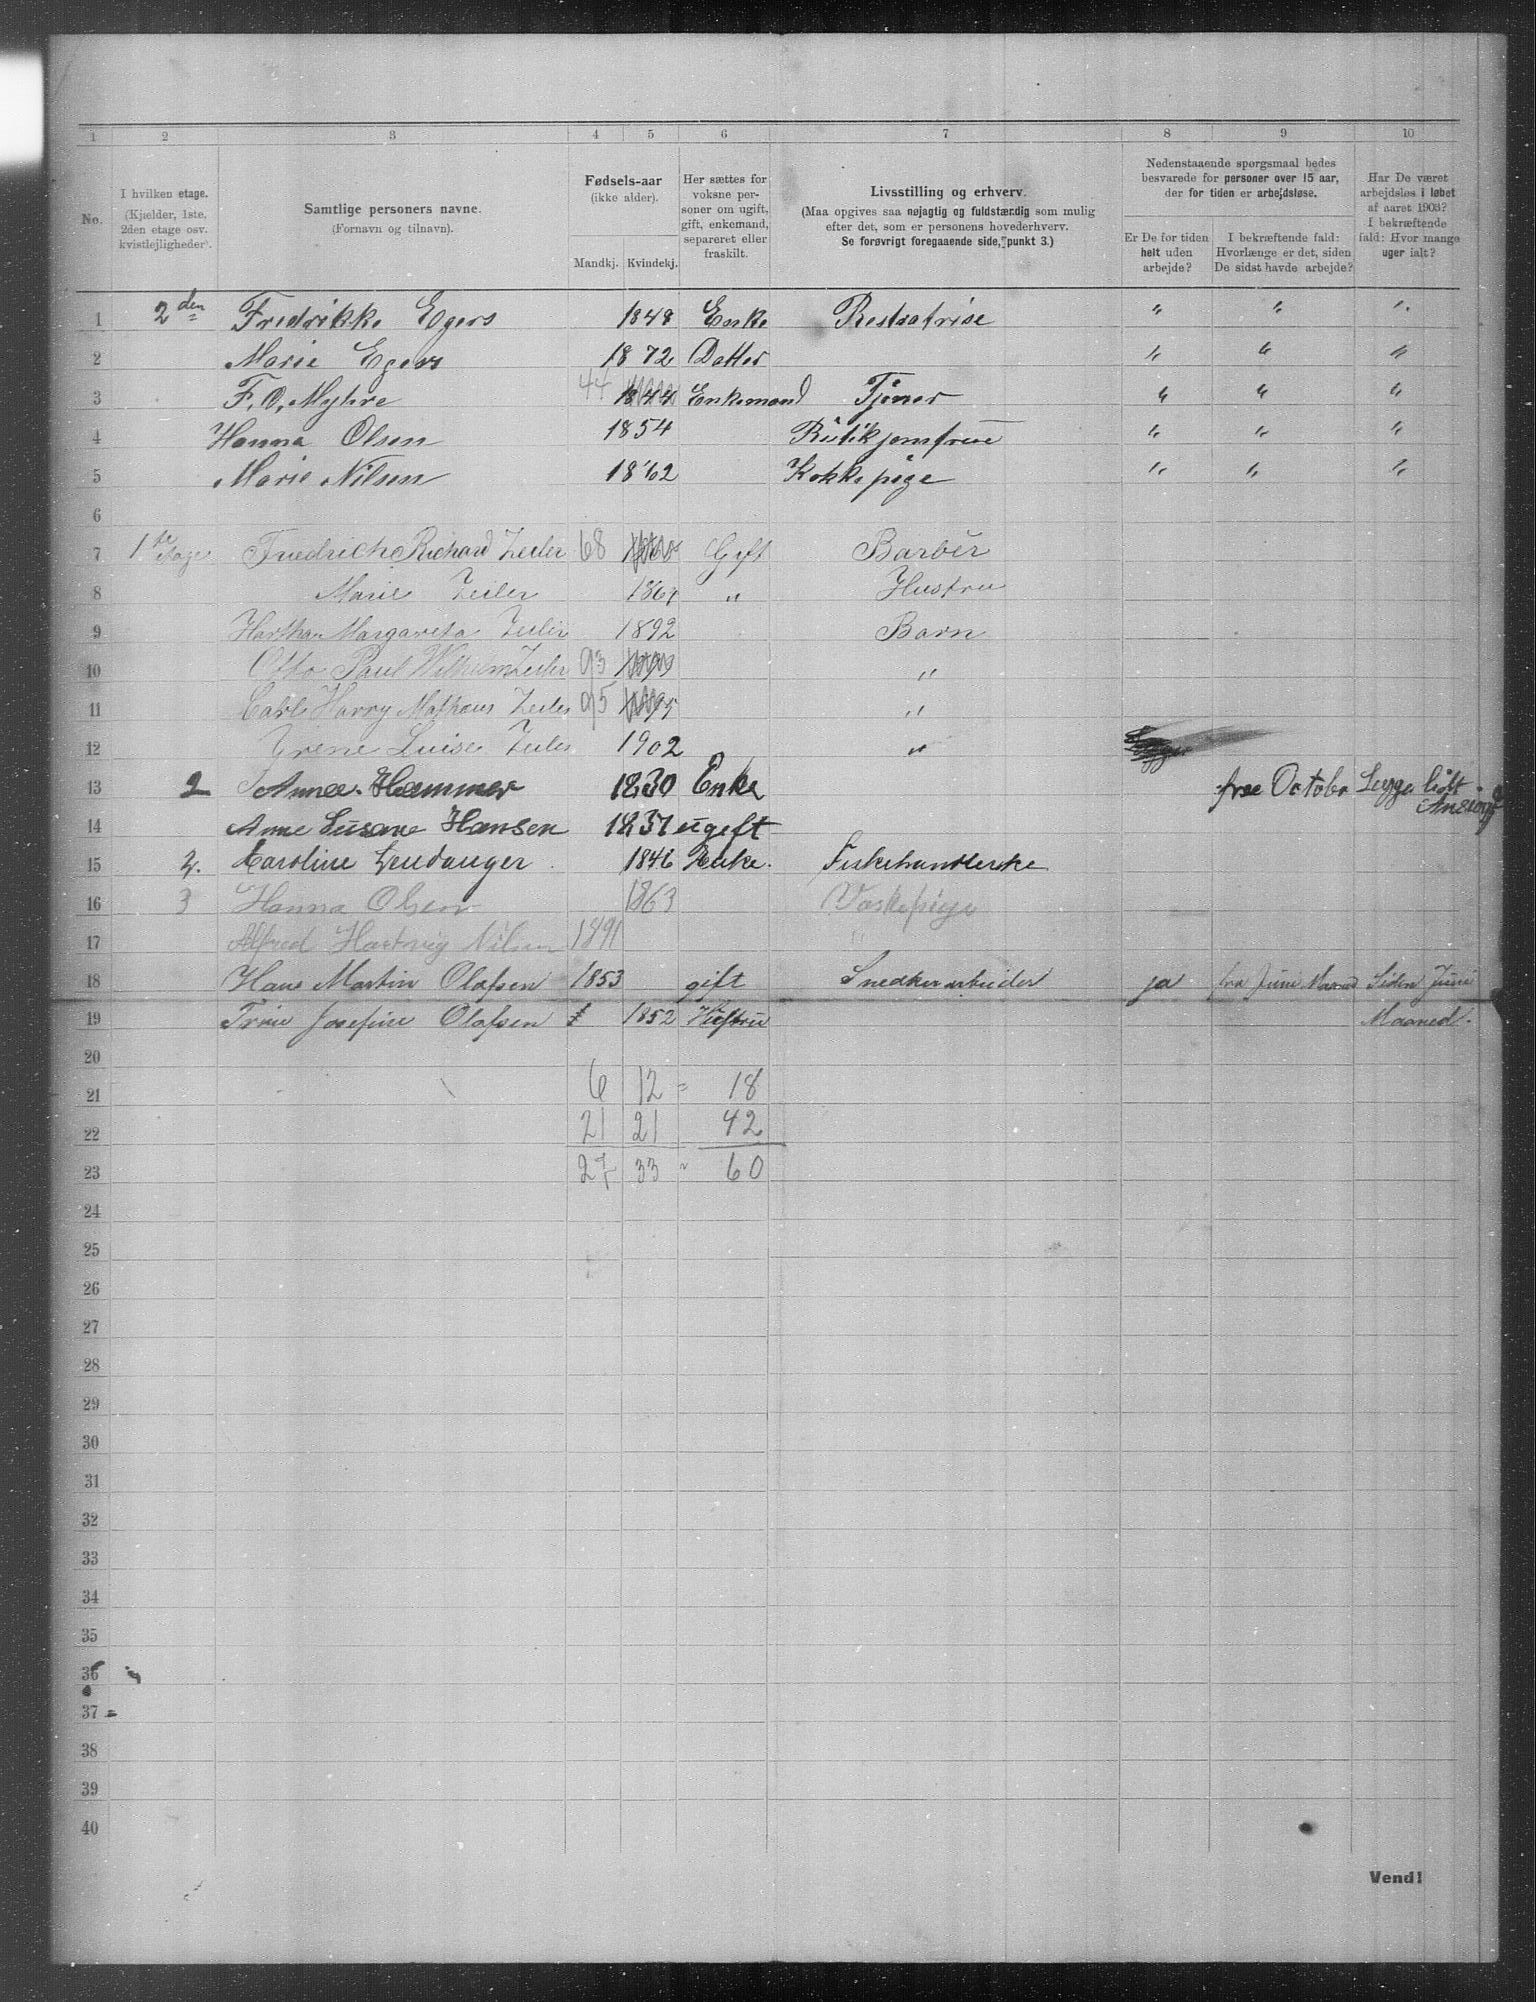 1 2 3 4 5 6 7 8 9 10
No.
I hvilken etage.
(Kjælder, 1ste,
2den etage osv.
kvistlejligheder).
Samtlige personers navne.
(Fornavn og tilnavn).
Fødsels-aar
(ikke alder).
Mandkj. Kvindekj.
Her sættes for
voksne per-
soner om ugift,
gift, enkemand,
separeret eller
fraskilt.
Livsstilling og erhverv.
(Maa opgives saa nøjagtig og fuldstændig som mulig
efter det, som er personens hovederhverv.
Se forøvrigt foregaaende side, punkt 3.)
Nedenstaaende spørgsmaal bedes
besvarede for personer over 15 aar,
der for tiden er arbejdsløse.
Er De for tiden
helt uden
arbejde?
I bekræftende fald:
Hvorlænge er det, siden
De sidst havde arbejde?
Har De været
arbejdsløs i løbet
af aaret 1903?
I bekræftende
fald: Hvor mange
uger ialt?
1 2den Fredrikke Egers 1848 Enke " " "
2 Marie Egers 1872 Datter " " "
3 F. O. Myhre 44 1844 Enkemand Tjener " " "
4 Hanna Olsen 1854 " " "
5 Marie Nilsen 1862 Kokkepige " " "
6
7 1ste Etage Friedrich Richard Zeiler 68 Gift Barbér
8 Marie Zeiler "  Hustru
9 Margareta Zeiler 1892 Barn
10 Otto Paul Wilhelm Zeiler 93 "
11 Carl Harry Zeiler 95 "
12 Yrene Luise Zeiler 1902 "
13 2 Anna Hammer 1830 Enke October
14 Anne Susane Hansen ugift
15 2. Caroline 1846 Enke.
16 3 Hanna Olsen 1863 Vaskepige
17 Alfred Hartvig Nilsen 1891 "
18 Hans Martin Olafsen 1853 gift Snedkerarbeider ja fra Juni Maaned Siden Juni
19 Josefine Olafsen 1852 Hustru Maaned.
20
21 6 12 = 18
22 21 21 42
23 27 33 " 60
24
25
26
27
28
29
30
31
32
33
34
35
36
37
38
39
40
Vend!